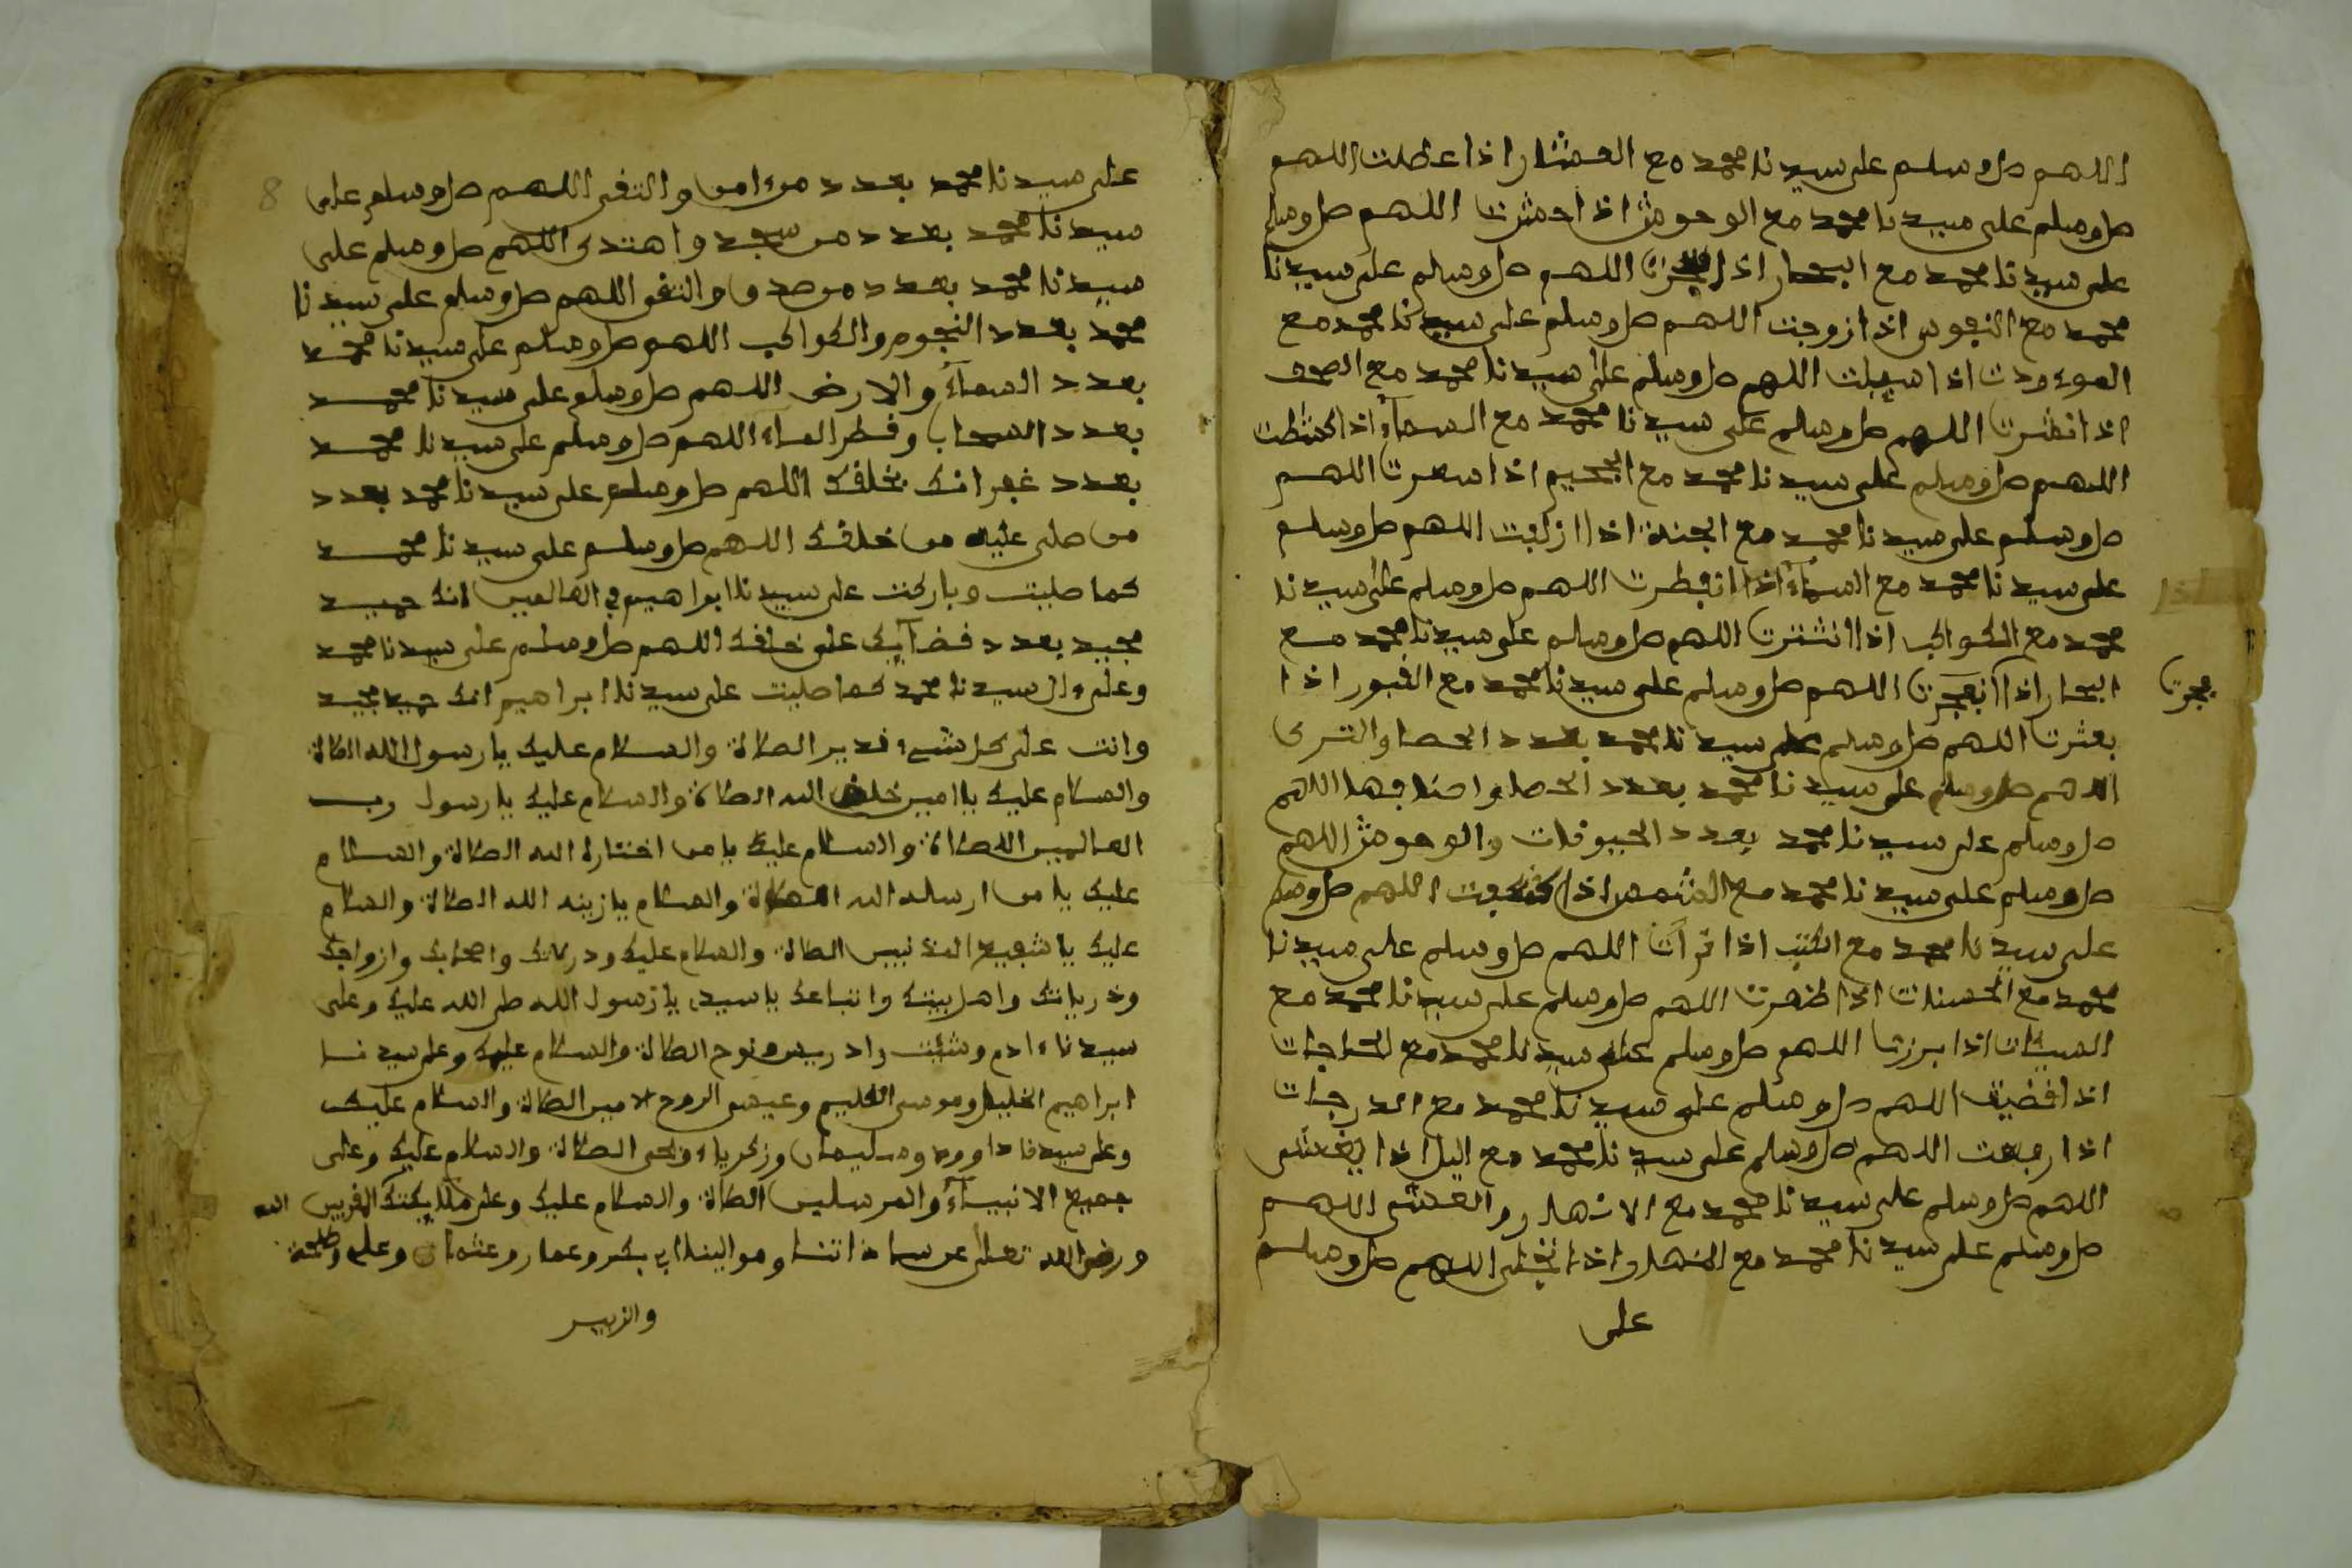 اللهم صل وسلم على سيدنا محمد مع العشار اذا عطلت اللهم
صل وسلم على سيدنا محمد مع الوحوش اذا حشرت اللهم صل وسلم
على سيدنا محمد مع البحار اذا فجرت اللهم صل وسلم على سيدنا
محمد مع النفوس اذا زوجت اللهم صل وسلم على سيدنا محمد مع
الموءودت اذا سيلت اللهم صل وسلم على سيدنا محمد مع الصحف
اذا نشرت اللهم صل وسلم على سيدنا محمد مع السماء اذا كشطت
اللهم صل وسلم على سيدنا محمد مع الجحيم اذا سعرت اللهم
صل وسلم على سيدنا محمد مع الجنة اذا ازلفت اللهم صل وسلم
على سيدنا محمد مع السماء اذا انفطرت اللهم صل وسلم على سيدنا
محمد مع الكواكب اذا انتثرت اللهم صل وسلم على سيدنا محمد مع
البحار اذا انفجرت اللهم صل وسلم على سيدنا محمد مع القبور اذا
فجرت
بعثرت اللهم صل وسلم على سيدنا محمد بعدد الحصا والثرى
اللهم صل وسلم على سيدنا محمد بعدد الحصا واضعافها اللهم
صل وسلم على سيدنا محمد بعدد الحيوانات والوحوش اللهم
صل وسلم على سيدنا محمد مع الشمس اذا كسفت اللهم صل وسلم
على سيدنا محمد مع الكتب اذا قرأت اللهم صل وسلم على سيدنا
محمد مع الحسنات اذا ظهرت اللهم صل وسلم على سيدنا محمد مع
السيئات اذا برزت اللهم صل وسلم على سيدنا محمد مع الحاجات
اذا قضيت اللهم صل وسلم على سيدنا محمد مع الدرجات
اذا رفعت اللهم صل وسلم على سيدنا محمد مع اليل اذا يغشى
اللهم صل وسلم على سيدنا محمد مع الازهار والعشى اللهم
صل وسلم على سيدنا محمد مع النهار اذا تجلى اللهم صل وسلم
على
8
على سيدنا محمد بعدد من ءامن والتقى اللهم صل وسلم على
سيدنا محمد بعدد من سجد واهتدى اللهم صل وسلم على
سيدنا محمد بعدد من صدق والتقى اللهم صل وسلم على سيدنا
محمد بعدد النجوم والكواكب اللهم صل وسلم على سيدنا محمد
بعدد السماء والارض اللهم صل وسلم على سيدنا محمد
بعدد السحاب وقطر الماء اللهم صل وسلم على سيدنا محمد
بعدد غفرانك بخلقك اللهم صل وسلم على سيدنا محمد بعدد
من صلى عليه من خلقك اللهم صل وسلم على سيدنا محمد
كما صليت وباركت على سيدنا ابراهيم في العالمين انك حميد
مجيد بعدد قضآيك على خلقك اللهم صل وسلم على سيدنا محمد
وعلى ءال سيدنا محمد كما صليت على سيدنا ابراهيم انك حميد مجيد
وانت على كل شيء قدير الصلاة والسلام عليك يا رسول الله الصلاة
والسلام عليك يا امين خلق الله الصلاة والسلام عليك يا رسول رب
العالمين الصلاة والسلام عليك يا من اختاره الله الصلاة والسلام
عليك يا من ارسله الله الصلاة والسلام يا زينه الله الصلاة والسلام
عليك يا شفيع المذنبين الصلاة والسلام عليك واصحابك وازواجك
وذرياتك واهل بيتك واتباعك يا سيدي يا رسول الله صلى الله عليك وعلى
سيدنا ءادم وشئت وادريس ونوح الصلاة والسلام عليك وعلى سيدنا
ابراهيم الخليل وموسى الكليم وعيسى الروح الامين الصلاة والسلام عليك
وعلى سيدنا داوود وسليمان وزكرياء ويحى الصلاة والسلام عليك وعلى
جميع الانبياء والمرسلين الصلاة والسلام عليك وعلى ملائكتك المقربين الله
ورضي الله تعالى عن ساداتنا وموالينا ابي بكر وعمار وعثمان وعلي وطلحة
والزبير